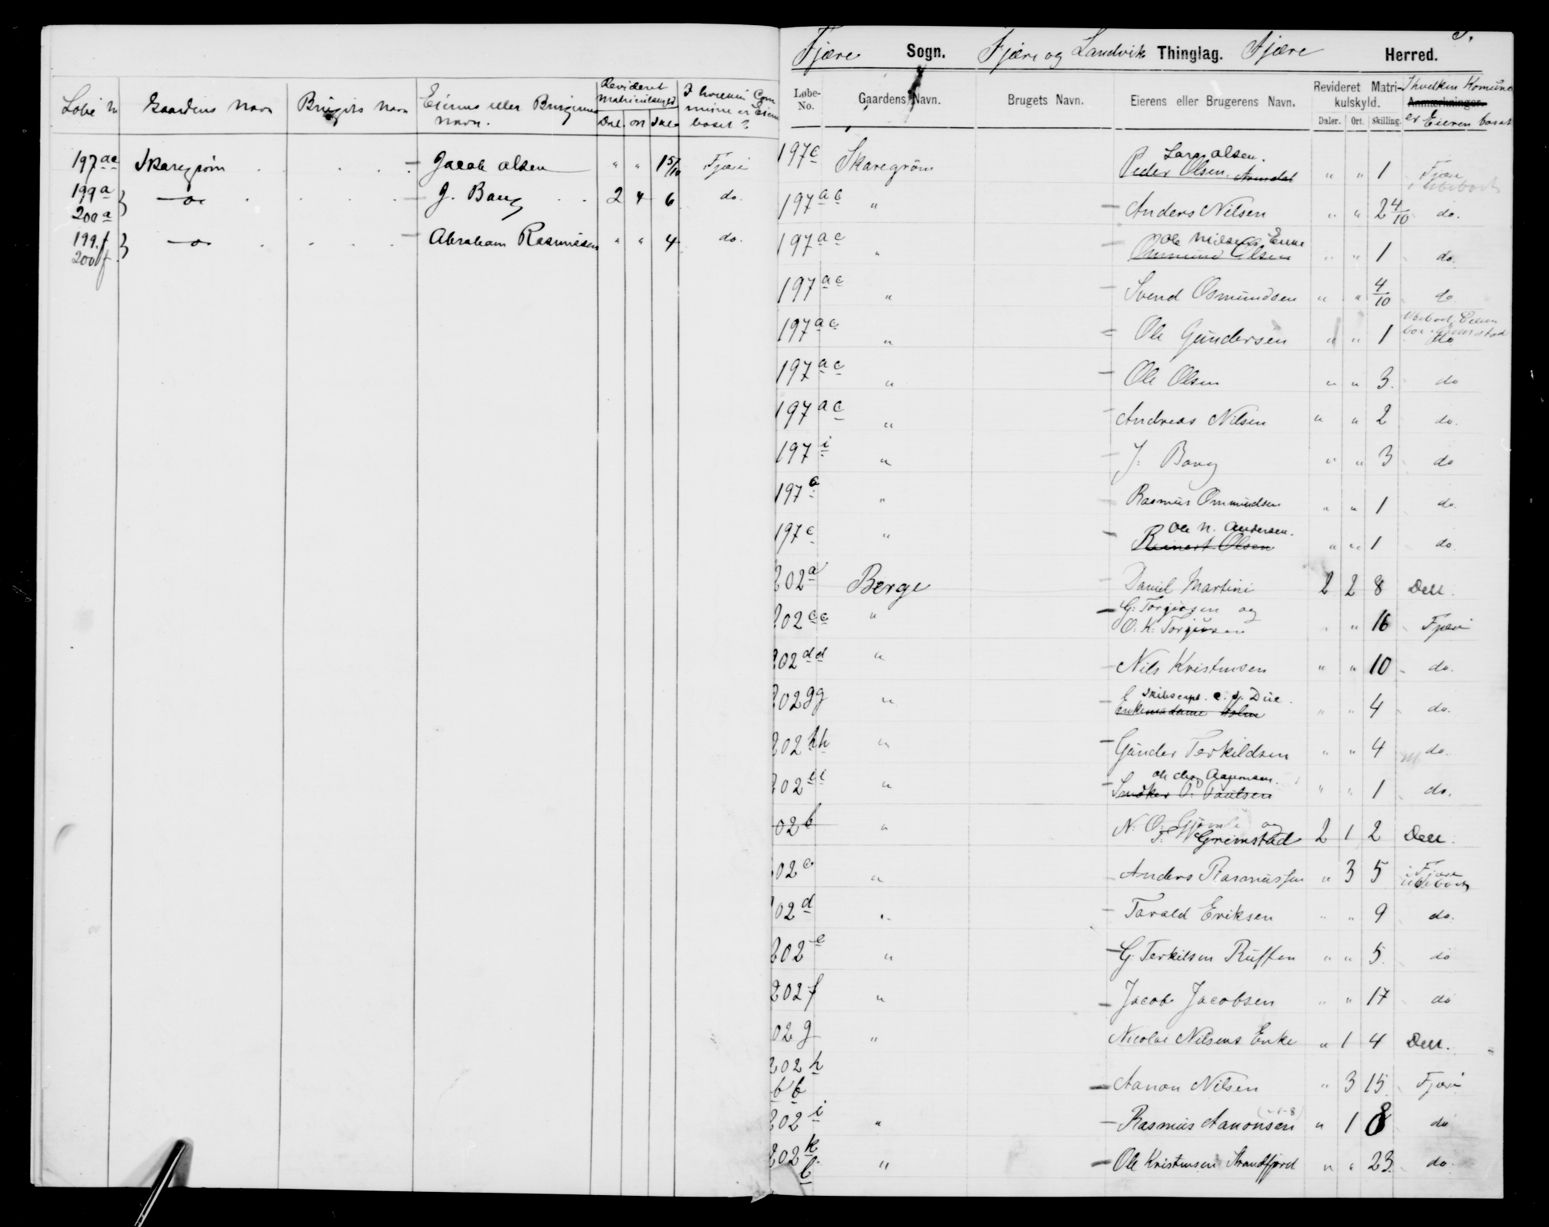 Løbe N Gaardens Navn Brugets Navn Eierens eller Brugerens Navn. Revideret Matrikulskyld Dal. Ort Skil I hvilken Commune er Eieren bosat?
197ac Skaregrøm Jacob Olsen " " 15/10 Fjære
199a 200a } —o— J. Bang 2 4 6 do.
199f 200f } —o— Abraham Rasmussen " " 4 do.
Fjære Sogn. Fjære og Landvik Thinglag. Fjære Herred.
Løbe-No. Gaardens Navn. Brugets Navn. Eierens eller Brugerens Navn. Revideret Matrikulskyld. Daler. Ort. Skilling. Anmærkninger.
I hvilken Komune er Eieren bosat
Lars Olsen.
197c Skaregrøm Peder Olsen, Arendal " " 1 Fjære
197ac " Anders Nilsen " " 2 4/10 do.
Ole Nielsens Enke
197ac " Osmund Olsen " " 1 do.
197ac " Svend Osmundsen " " 4/10 do
197ac " Ole Gundersen " " 1 do
197ac " Ole Olsen " " 3 do
197ac " Andreas Nilsen " " 2 do.
197i " J. Bang " " 3 do
197 " Rasmus Ommundsen " " 1 do
Ole N. Andersen.
197c " Reinert Olsen " " 1 do.
202a Berge Daniel Martini 2 2 8 Dell.
G. Torgiusen og
202cc " O. K. Torgiusen " " 16 Fjære
202dd " Nils Kristensen " " 10 do.
Skibscapt. C. J. Due.
202gg " Enkemadame Holm " " 4 do.
202hh " Gunder Terkildsen " " 4 do.
Aanonsen.
202ii " O. Paulsen " " 1 do.
02b " N. O. og
Grimstad 2 1 2 Dell.
02c " Anders Rasmussen " 3 5 i Fjære ubeboet
02d " Tarald Eriksen " " 9 do.
202e " G. Terkilsen Ruften " " 5 do
202f " Jacob Jacobsen " " 17 do
02g " Nicolai Nilsens Enke " 1 4 Dell.
202h
bb Aanon Nilsen " 3 15 Fjære
202i " Rasmus Aanonsen " 1 8 do
202k
b " Ole Kristensen Strandfjord " " 23 do.